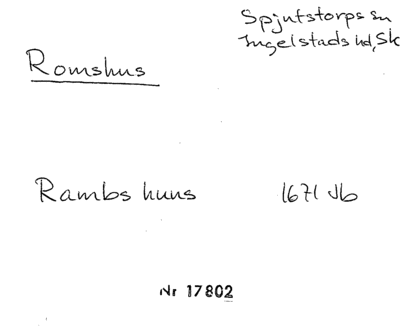 Spjutstorps sn
Ingelstads hd, Sk
Romshus
Rambs huus 1671 Jb
Nr 17802